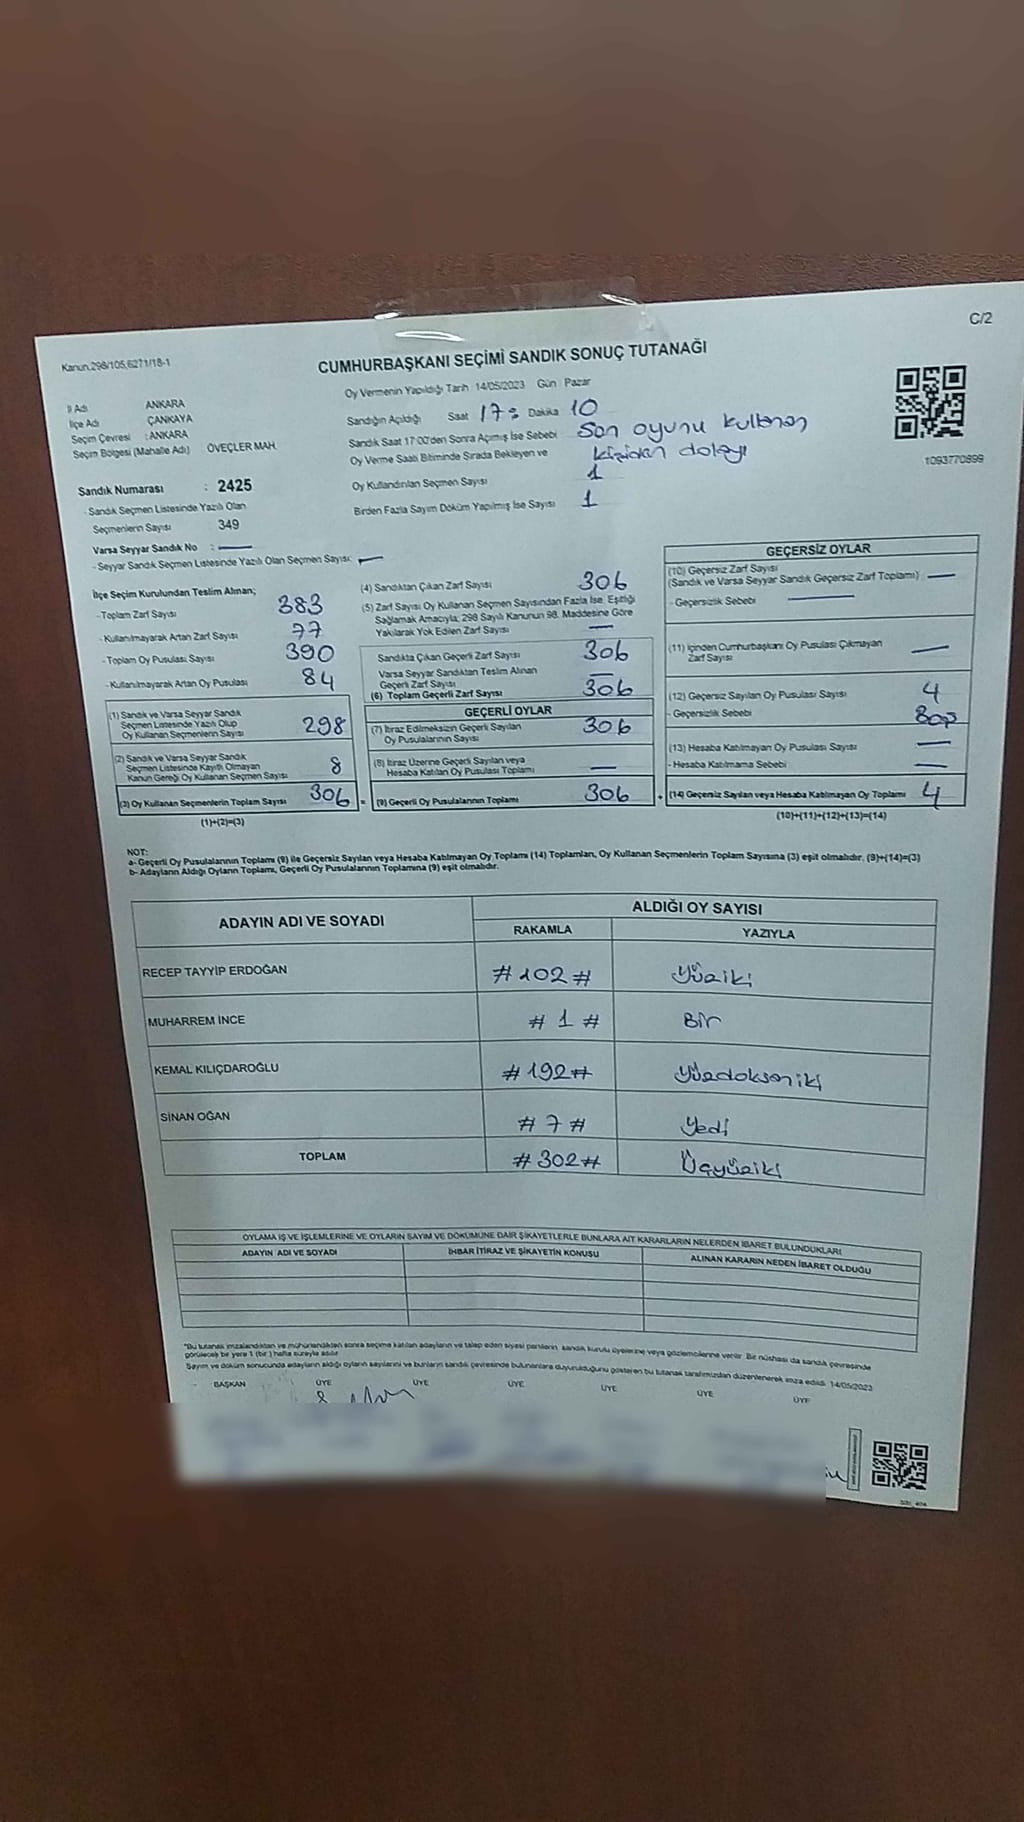 C/2
Kanun.298/105,6271/18-1
CUMHURBAŞKANI SEÇİMİ SANDIK SONUÇ TUTANAĞI
Oy Vermenin Yapıldığı Tarih 14/05/2023 Gün Pazar
İl Adı ANKARA
İlçe Adı ÇANKAYA
Seçim Çevresi : ANKARA
Seçim Bölgesi (Mahalle Adı) ÖVEÇLER MAH.
Sandığın Açıldığı Saat 17: Dakika 10
Sandık Saat 17:00'den Sonra Açılmış İse Sebebi Son oyunu kullanan
kişiden dolayı
Oy Verme Saati Bitiminde Sırada Bekleyen ve
Oy Kullandırılan Seçmen Sayısı 1
Birden Fazla Sayım Döküm Yapılmış İse Sayısı 1
1093770899
Sandık Numarası : 2425
- Sandık Seçmen Listesinde Yazılı Olan
Seçmenlerin Sayısı 349
Varsa Seyyar Sandık No : —
- Seyyar Sandık Seçmen Listesinde Yazılı Olan Seçmen Sayısı: —
İlçe Seçim Kurulundan Teslim Alınan;
- Toplam Zarf Sayısı 383
- Kullanılmayarak Artan Zarf Sayısı 77
- Toplam Oy Pusulası Sayısı 390
- Kullanılmayarak Artan Oy Pusulası 84
(1) Sandık ve Varsa Seyyar Sandık
Seçmen Listesinde Yazılı Olup
Oy Kullanan Seçmenlerin Sayısı 298
(2) Sandık ve Varsa Seyyar Sandık
Seçmen Listesinde Kayıtlı Olmayan
Kanun Gereği Oy Kullanan Seçmen Sayısı 8
(3) Oy Kullanan Seçmenlerin Toplam Sayısı 306 =
(1)+(2)=(3)
(4) Sandıktan Çıkan Zarf Sayısı 306
(5) Zarf Sayısı Oy Kullanan Seçmen Sayısından Fazla İse, Eşitliği
Sağlamak Amacıyla; 298 Sayılı Kanunun 98. Maddesine Göre
Yakılarak Yok Edilen Zarf Sayısı —
Sandıkta Çıkan Geçerli Zarf Sayısı 306
Varsa Seyyar Sandıktan Teslim Alınan
Geçerli Zarf Sayısı —
(6) Toplam Geçerli Zarf Sayısı 306
GEÇERLİ OYLAR
(7) İtiraz Edilmeksizin Geçerli Sayılan
Oy Pusulalarının Sayısı 306
(8) İtiraz Üzerine Geçerli Sayılan veya
Hesaba Katılan Oy Pusulası Toplamı —
(9) Geçerli Oy Pusulalarının Toplamı 306 +
GEÇERSİZ OYLAR
(10) Geçersiz Zarf Sayısı
(Sandık ve Varsa Seyyar Sandık Geçersiz Zarf Toplamı) —
- Geçersizlik Sebebi —
(11) İçinden Cumhurbaşkanı Oy Pusulası Çıkmayan
Zarf Sayısı —
(12) Geçersiz Sayılan Oy Pusulası Sayısı 4
- Geçersizlik Sebebi Boş
(13) Hesaba Katılmayan Oy Pusulası Sayısı —
- Hesaba Katılmama Sebebi —
(14) Geçersiz Sayılan veya Hesaba Katılmayan Oy Toplamı 4
(10)+(11)+(12)+(13)=(14)
NOT:
a- Geçerli Oy Pusulalarının Toplamı (9) ile Geçersiz Sayılan veya Hesaba Katılmayan Oy Toplamı (14) Toplamları, Oy Kullanan Seçmenlerin Toplam Sayısına (3) eşit olmalıdır. (9)+(14)=(3)
b- Adayların Aldığı Oyların Toplamı, Geçerli Oy Pusulalarının Toplamına (9) eşit olmalıdır.
ADAYIN ADI VE SOYADI ALDIĞI OY SAYISI
RAKAMLA YAZIYLA
RECEP TAYYİP ERDOĞAN #102# Yüziki
MUHARREM İNCE #1# Bir
KEMAL KILIÇDAROĞLU #192# Yüzdoksaniki
SİNAN OĞAN #7# Yedi
TOPLAM #302# Üçyüziki
OYLAMA İŞ VE İŞLEMLERİNE VE OYLARIN SAYIM VE DÖKÜMÜNE DAİR ŞİKAYETLERLE BUNLARA AİT KARARLARIN NELERDEN İBARET BULUNDUKLARI
ADAYIN ADI VE SOYADI İHBAR İTİRAZ VE ŞİKAYETİN KONUSU ALINAN KARARIN NEDEN İBARET OLDUĞU
*Bu tutanak imzalandıktan ve mühürlendikten sonra seçime katılan adayların ve talep eden siyasi partilerin sandık kurulu üyelerine veya gözlemcilerine verilir. Bir nüshası da sandık çevresinde
görülecek bir yere 1 (bir) hafta süreyle asılır.
Sayım ve döküm sonucunda adayların aldığı oyların sayılarını ve bunların sandık çevresinde bulunanlara duyurulduğunu gösteren bu tutanak tarafımızdan düzenlenerek imza edildi. 14/05/2023
BAŞKAN ÜYE ÜYE ÜYE ÜYE ÜYE ÜYE